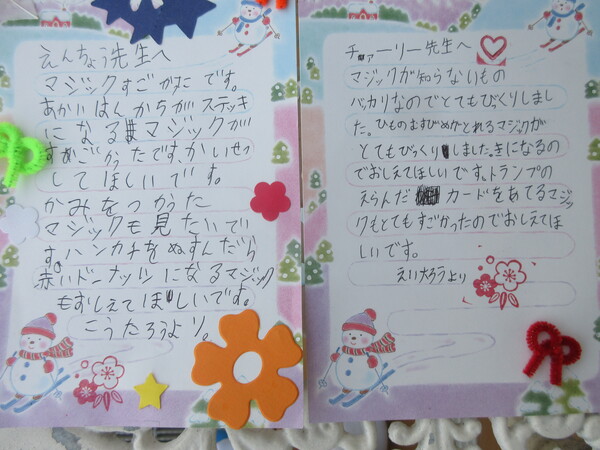 えんちょう先生へ
マジックすごかたです。
あかいはんかちがステッキ
になるマジックが
すめごかったです。かいせつ
してほしいです。
かみをつかうた
マジックも見たいでい
す。ハンカチをぬすんだら
赤いドーナッツになるマジック
もおしえてほしいです。
こうたろうより。
チャーリー先生へ
マジックが知らないもの
バッカリなのでとてもびくりしまし
た。ひものむすびめがとれるマジックが
とてもびっくりしました。きになるの
でおしえてほしいです。トランプの
えらんだカードをあてるマジッ
クもとてもすごかったのでおしえてほ
しいです。
えいたろうより